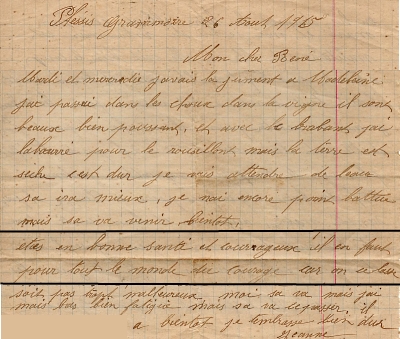 Plessis Grammoire 26 Aout 1915
Mon cher René
Mardi et mercredi javais la jument a Madelaine
jai passée dans les choux dans la vigne il sont
beaux bien poussant, et avec le brabant jai
labourré pour le rousillont mais la terre et
seche cest dur je vais attendre de leau
sa ira mieux, je nai encore point battue
mais sa va venir bientot,
etes en bonne santé et courrageux il en faut
pour tout le monde du courage car on ce
soit pas trop malheureux moi sa va mais jai
mais bas bien fatigué mais sa va repasser. il
a bientot je tembrasse bien dur
Jeanne